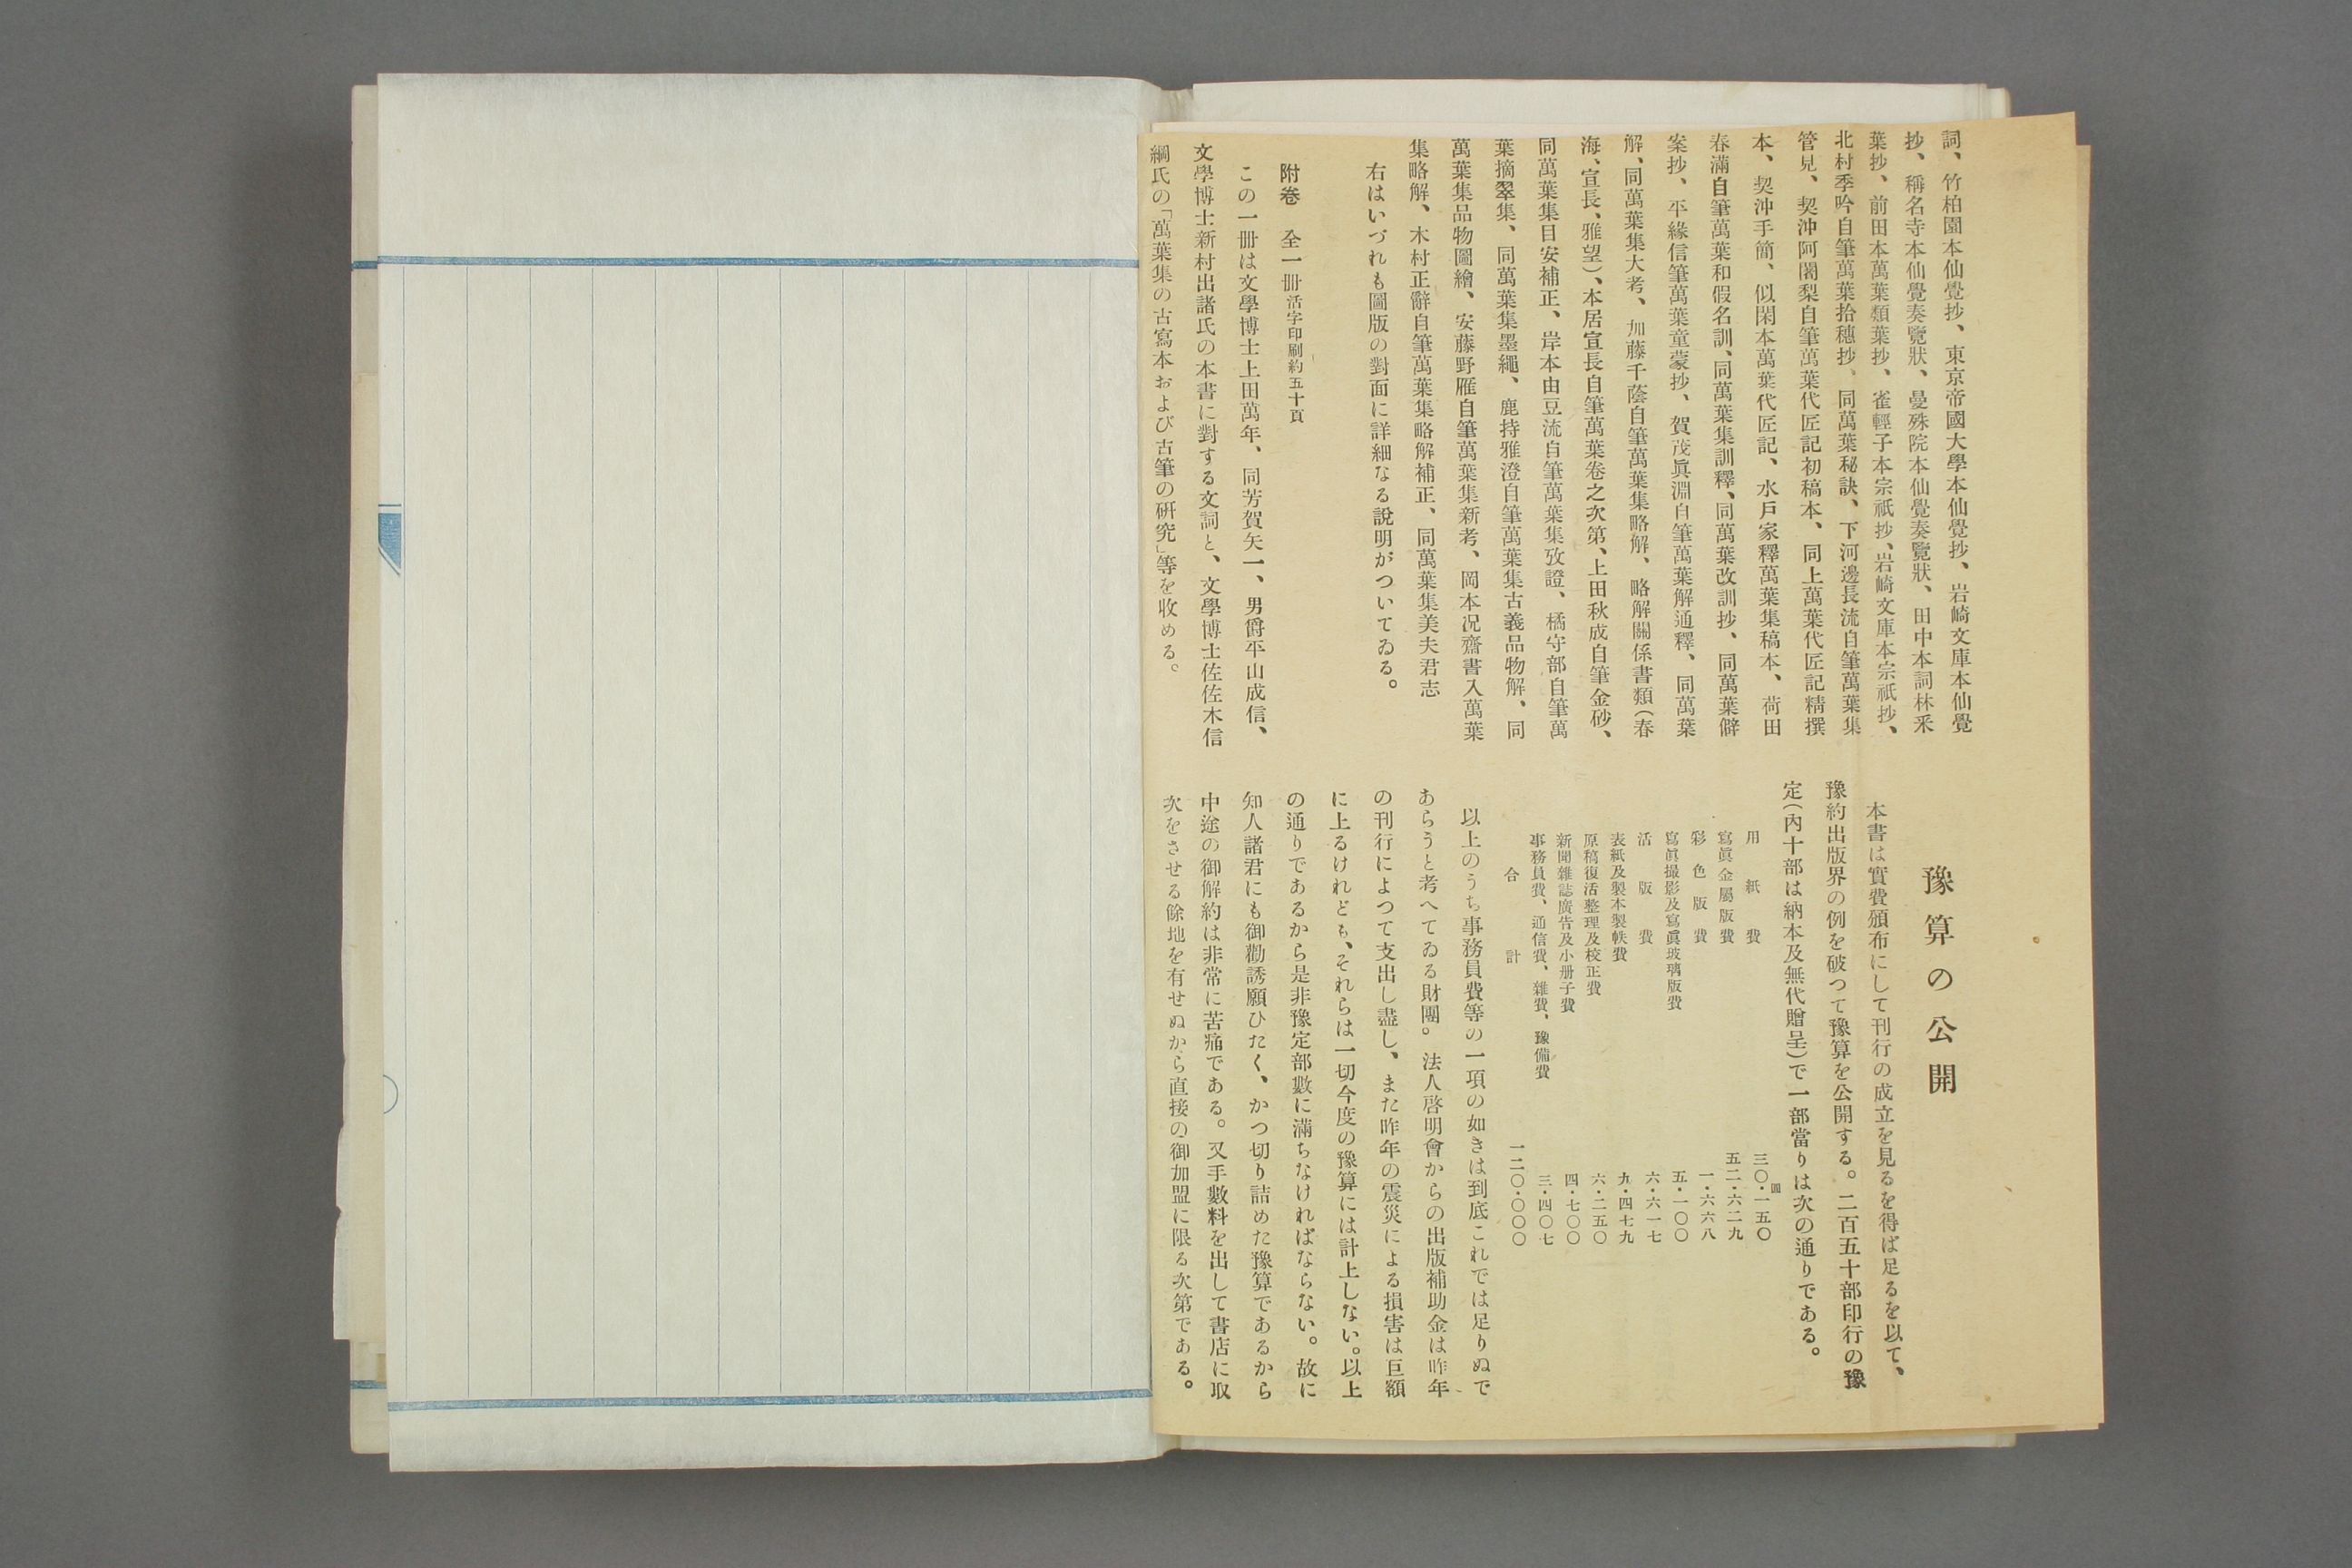 詞、竹柏園本仙覺抄、東京帝國大學本仙覺抄、岩崎文庫本仙覺
抄、稱名寺本仙覺奏覽狀、曼殊院本仙覺奏覽狀、田中本詞林釆
葉抄、前田本萬葉類葉抄、雀輕子本宗祇抄、岩崎文庫本宗祇抄、
北村季吟自筆萬葉拾穗抄、同萬葉秘訣、下河邊長流自筆萬葉集
管見、契沖阿闍梨自筆萬葉代匠記初稿本、同上萬葉代匠記精撰
本、契沖手簡、似閑本萬葉代匠記、水戶家釋萬葉集稿本、荷田
春滿自筆萬葉和假名訓、同萬葉集訓釋、同萬葉改訓抄、同萬葉僻
案抄、平緣信筆萬葉童蒙抄、賀茂眞淵自筆萬葉解通釋、同萬葉
解、同萬葉集大考、加藤千蔭自筆萬葉集略解、略解關係書類(春
海、宣長、雅望)、本居宣長自筆萬葉卷之次第、上田秋成自筆金砂、
同萬葉集目安補正、岸本由豆流自筆萬葉集攷證、橘守部自筆萬
葉摘翠集、同萬葉集墨繩、鹿持雅澄自筆萬葉集古義品物解、同
萬葉集品物圖繪、安藤野雁自筆萬葉集新考、岡本況齋書入萬葉
集略解、木村正辭自筆萬葉集略解補正、同萬葉集美夫君志
右はいづれも圖版の對面に詳細なる說明がついてゐる。
附卷 全一冊 活字印刷約五十頁
この一冊は文學博士上田萬年、同芳賀矢一、男爵平山成信、
文學博士新村出諸氏の本書に對する文詞と、文學博士佐佐木信
綱氏の「萬葉集の古寫本および古筆の研究」等を收める。
豫算の公開
本書は實費頒布にして刊行の成立を見るを得ば足るを以て、
豫約出版界の例を破つて豫算を公開する。二百五十部印行の豫
定(內十部は納本及無代贈呈)で一部當りは次の通りである。
用紙費 三〇・一五〇圓
寫眞金屬版費 五二・六二九
彩色版費 一・六六八
寫眞撮影及寫眞玻璃版費 五・一〇〇
活版費 六・六一七
表紙及製本製帙費 九・四七九
原稿復活整理及校正費 六・二五〇
新聞雜誌廣告及小册子費 四・七〇〇
事務員費、通信費、雜費、豫備費 三・四〇七
合計 一二〇・〇〇〇
以上のうち事務員費等の一項の如きは到底これでは足りぬで
あらうと考へてゐる財團。法人啓明會からの出版補助金は昨年
の刊行によつて支出し盡し、また昨年の震災による損害は巨額
に上るけれども、それらは一切今度の豫算には計上しない。以上
の通りであるから是非豫定部數に滿ちなければならない。故に
知人諸君にも御勸誘願ひたく、かつ切り詰めた豫算であるから
中途の御解約は非常に苦痛である。又手數料を出して書店に取
次をさせる餘地を有せぬから直接の御加盟に限る次第である。